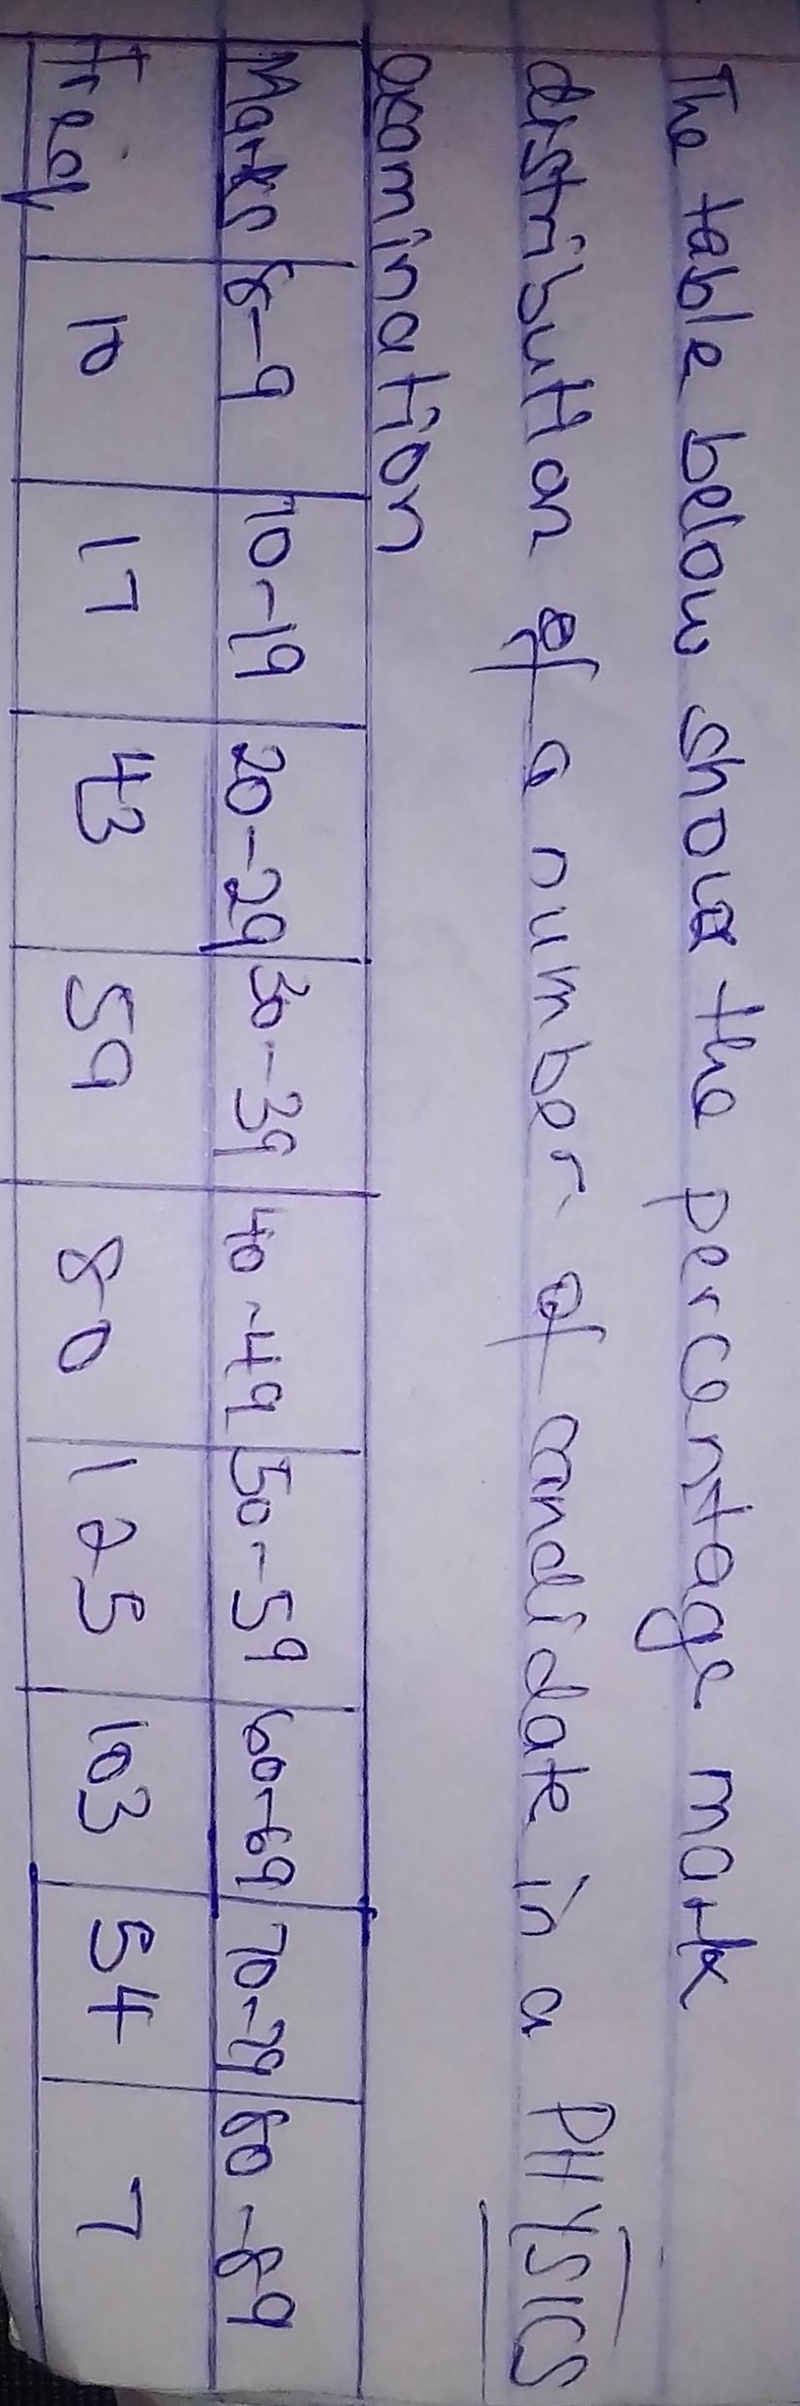 The table below shows the percentage mark
distribution of a number of candidate in a PHYSICS
examination
Marks 8-9 10-19 20-29 30-39 40-49 50-59 60-69 70-79 80-89
Freq 10 17 43 59 80 125 103 54 7